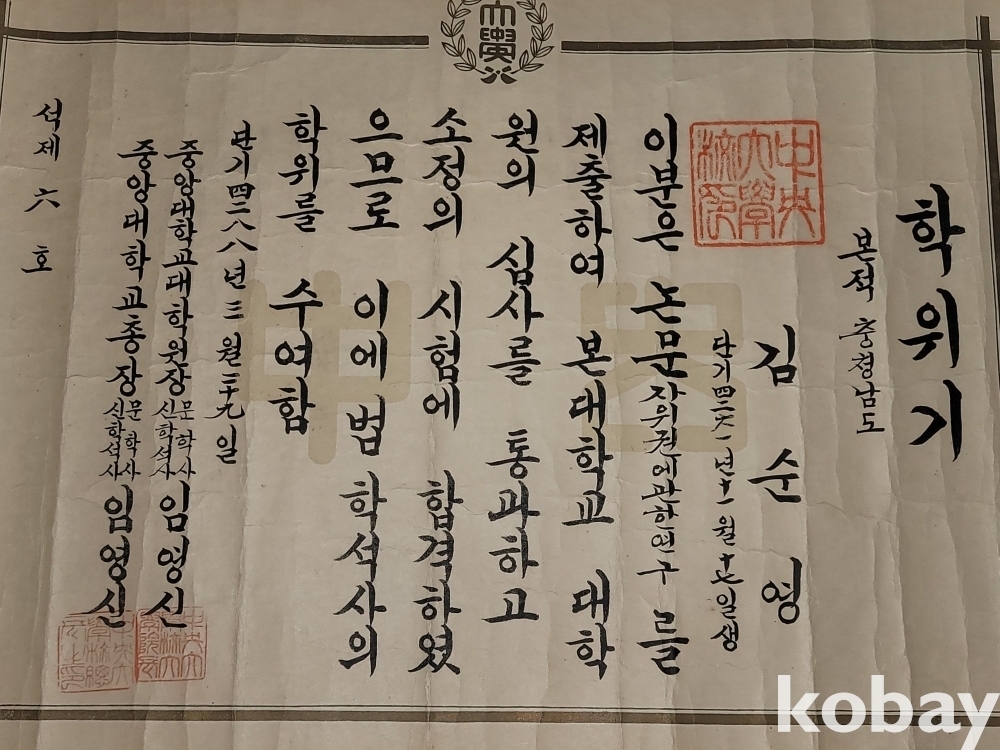 大學
학위기
본적 충청남도
김순영
단기四二六一년十一월十七일생
中央大學校印
이분은 논문 자위권에관한연구를
제출하여 본대학교 대학
원의 심사를 통과하고
소정의 시험에 합격하였
으므로 이에 법학석사의
학위를 수여함
단기四二八八년三월二十九일
중앙대학교대학원장 문학사 신학석사 임영신
중앙대학교총장 문학사 신학석사 임영신
석제六호
kobay